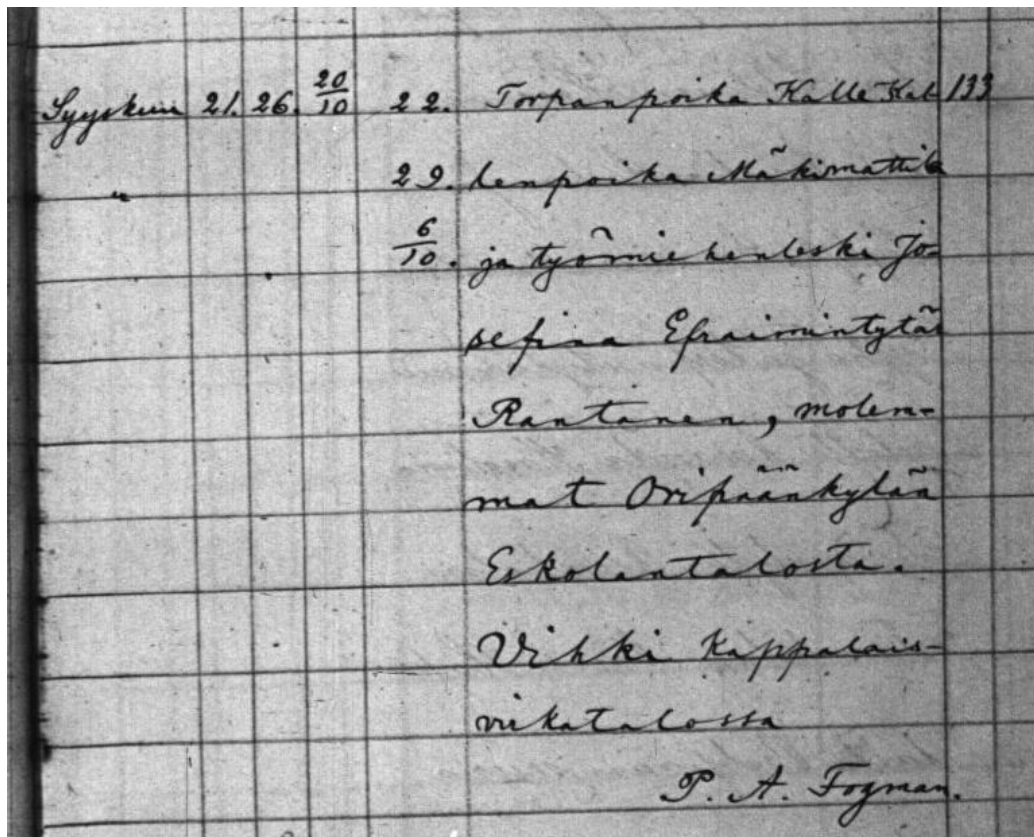 Syyskuu 21. 26. 20/10 22. Torpanpoika Kalle Kal 133
" 29. lenpoika Mäkimattila
6/10. ja työmiehenleski Jo-
sefina Efraimintytär
Rantanen, molem-
mat Oripäänkylän
Eskolantalosta.
Vihki Kappalais-
virkatalossa
P. A. Fogman.